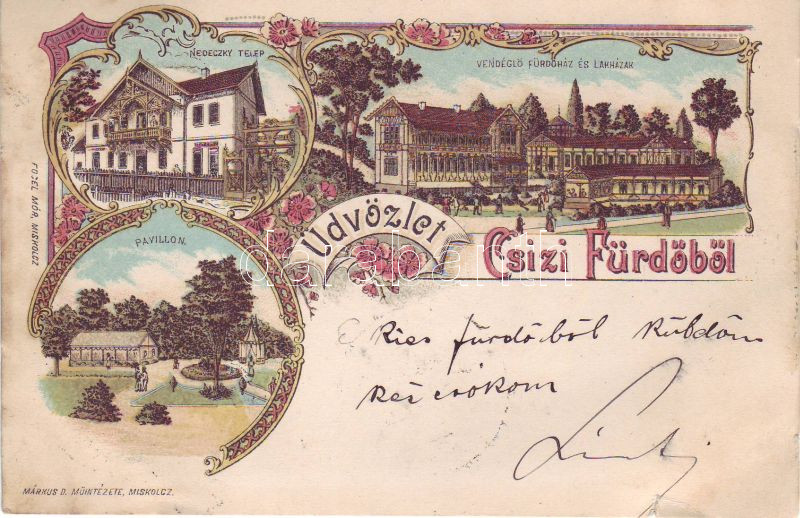 NEDECZKY TELEP
VENDÉGLŐ FÜRDŐHÁZ ÉS LAKHÁZAK
FODEL MÓR, MISKOLCZ
PAVILLON.
Üdvözlet
Csizi Fürdőből
darabanth
E kies fürdőből küldöm
kézcsókom
MÁRKUS D. MŰINTÉZETE, MISKOLCZ.